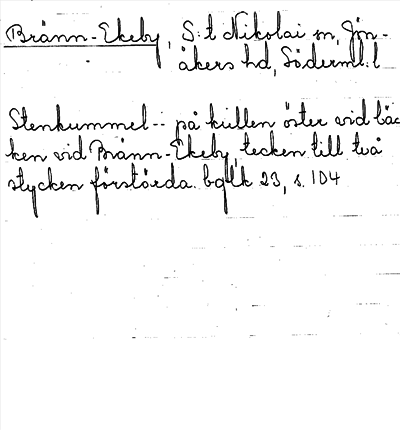 Bränn-Ekeby, S:t Nikolai sn, Jön-
åkers hd, Söderml:l
Stenkummel -- på kullen öster vid bäc
ken vid Bränn-Ekeby, tecken till två
stycken förstörda. bqlk 23, s. 104